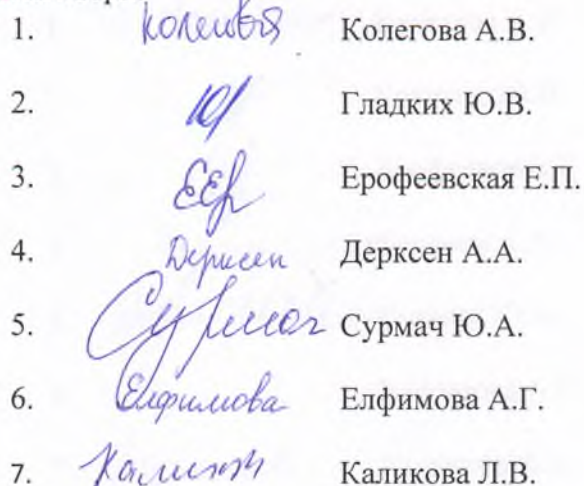 1. Колегова Колегова А.В.
2. Гладких Ю.В.
3. Ерофеевская Е.П.
4. Дерксен Дерксен А.А.
5. Сурмач Сурмач Ю.А.
6. Елфимова Елфимова А.Г.
7. Каликова Л.В.